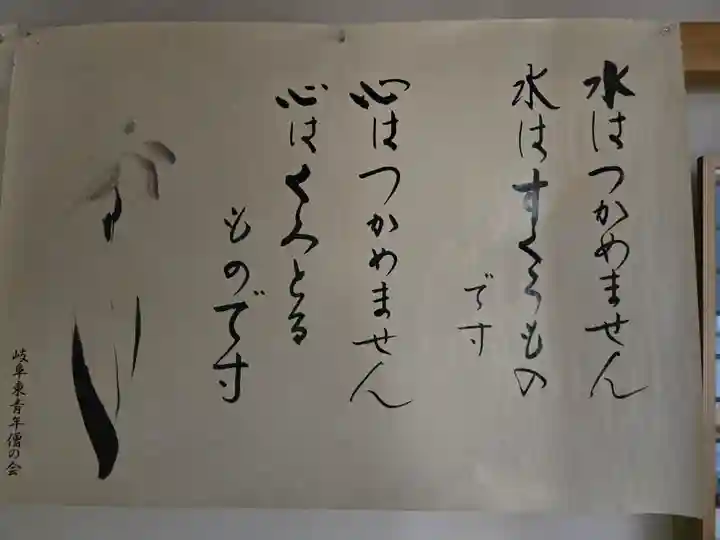 水はつかめません
水はすくうもの
です
心はつかめません
心はくみとる
ものです
岐阜東青年僧の会